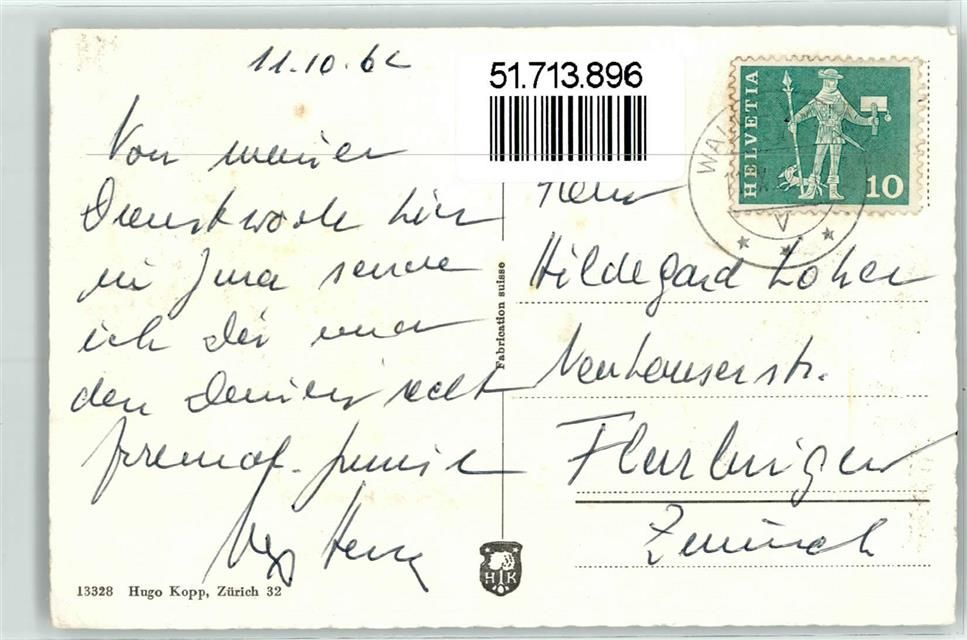 11.10.62
51.713.896
Von meiner
Dienstwoche hier
im Jura sende
ich Dir und
den Deinen recht
freundl. Grüsse
HELVETIA
10
WAL
Fabrication suisse
Hildegard Loher
Neuhauserstr.
Flurlingen
Zürich
13328 Hugo Kopp, Zürich 32
HK